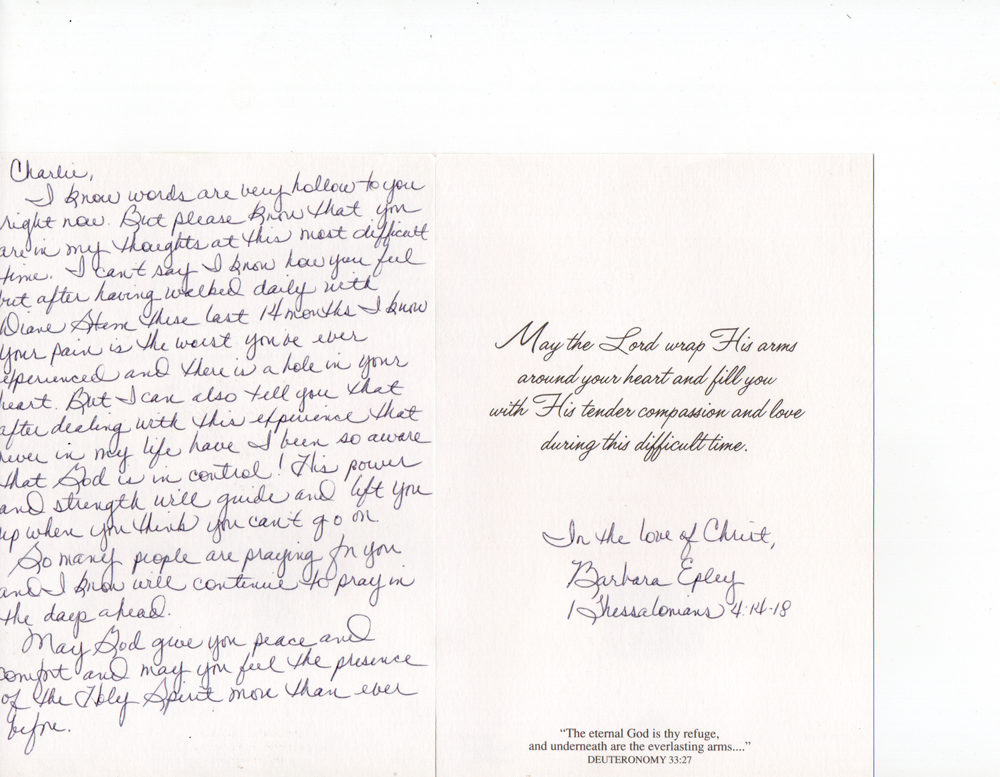 Charlie,
I know words are very hollow to you
right now. But please know that you
are in my thoughts at this most difficult
time. I can't say I know how you feel
but after having walked daily with
Diane Stem these last 14 months I know
your pain is the worst you've ever
experienced and there is a hole in your
heart. But I can also tell you that
after dealing with this experience that
never in my life have I been so aware
that God is in control! His power
and strength will guide and lift you
up when you think you can't go on.
So many people are praying for you
and I know will continue to pray in
the days ahead.
May God give you peace and
comfort and may you feel the presence
of the Holy Spirit more than ever
before.
May the Lord wrap His arms
around your heart and fill you
with His tender compassion and love
during this difficult time.
In the love of Christ,
Barbara Epley
1 Thessalonians 4:14-18
"The eternal God is thy refuge,
and underneath are the everlasting arms...."
DEUTERONOMY 33:27